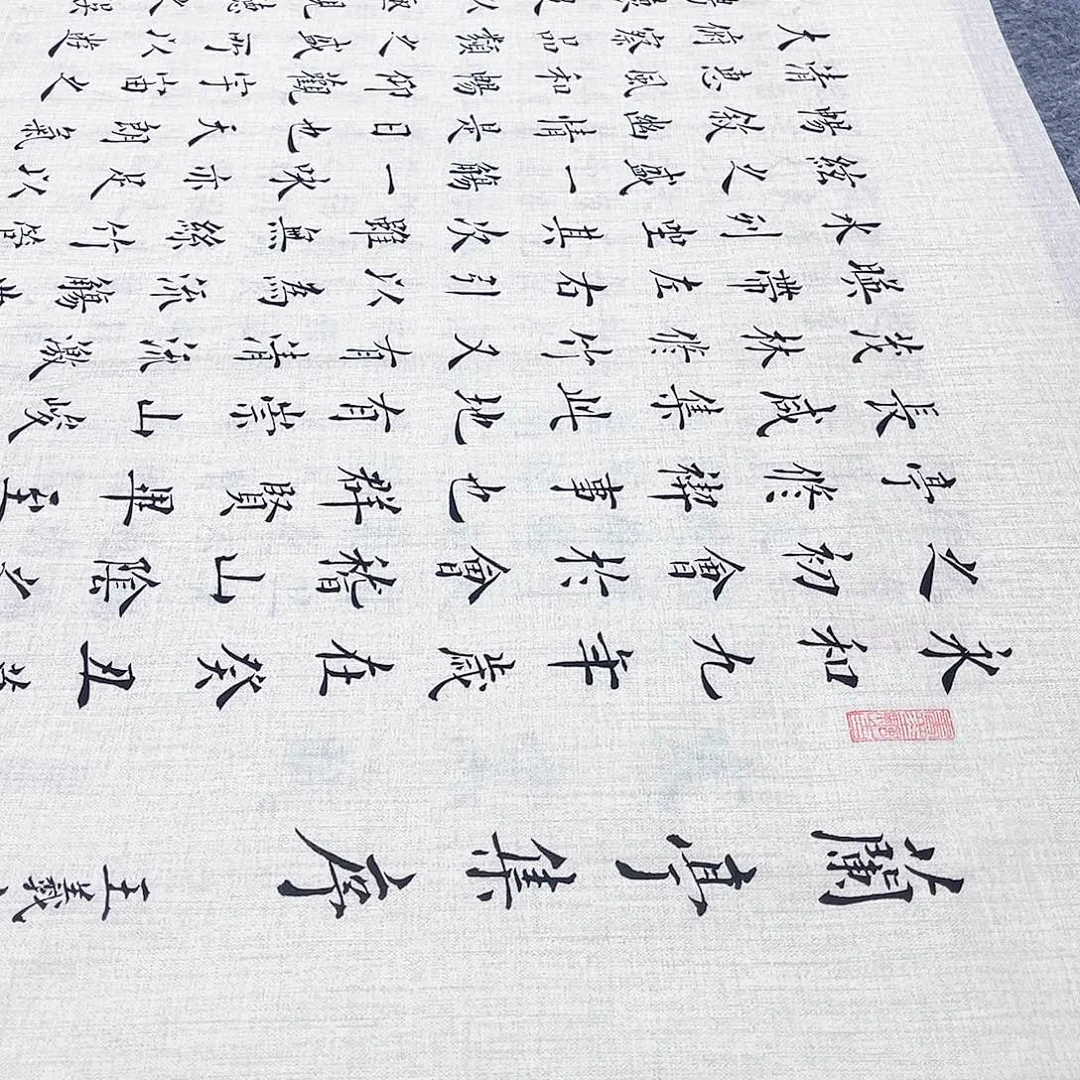 蘭亭集序 王羲
永和九年歲在癸丑
之初會於會稽山陰之
亭修禊事也群賢畢至
長咸集此地有崇山峻
茂林修竹又有清流激
暎帶左右引以為流觴曲
水列坐其次雖無絲竹管
絃之盛一觴一詠亦足以
暢敘幽情是日也天朗氣
清惠風和暢仰觀宇宙之
大俯察品類之盛所以遊